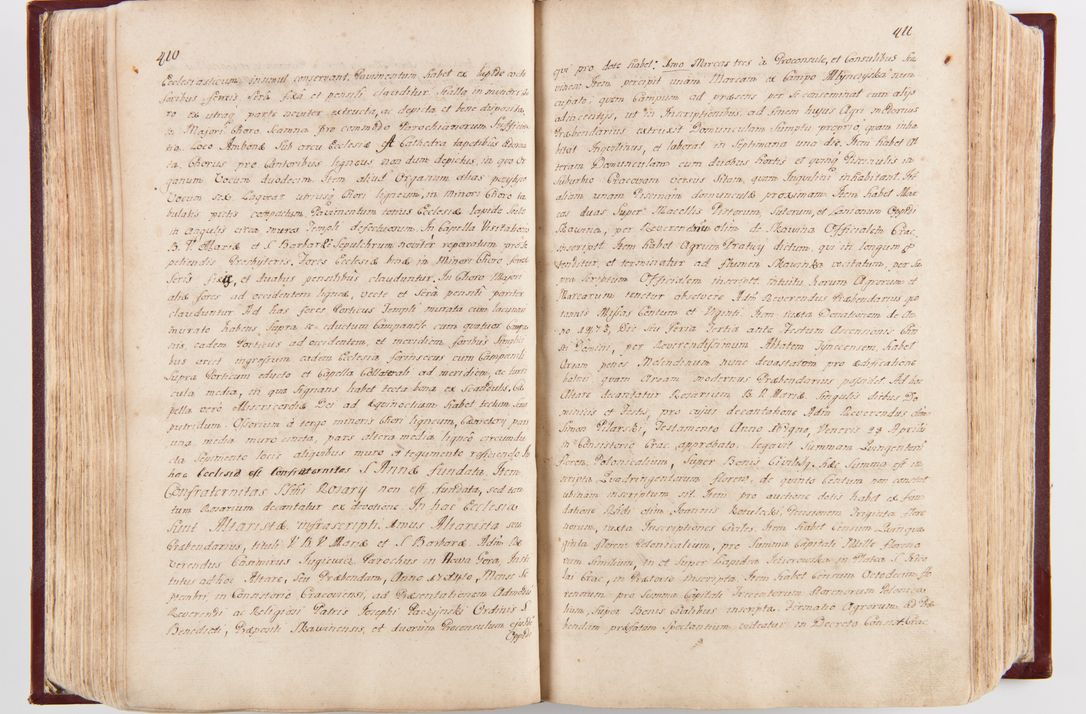 410
Ecclesiasticum, insimul conservant. Pavimentum habet ex lapide
foribus ferreis Sera fixa et pensili clauditur. Stalla in minori Cho
ro ex utraq parte noviter extructa, ac depicta et bene disposita,
in Majori Choro Scamna pro commodo Parochianorum Sufficien
tia. Loco Ambonæ Sub arcu Ecclesiæ Cathedra tapetibus
ta, Chorus pro Cantoribus ligneus non dum depictus, in quo Or
ganum Vocum duodecim. Item aliud Organum alias pozytyw
Vocum sex. Laquear utriusq Chori ligneum, in minori Choro ta
bulatis pictis compactum, Pavimentum totius Ecclesiæ lapide
in angulis circa muros Templi defectuosum. In Capella Visitationis
B. V. Mariæ et S. Barbaræ Sepulchrum noviter reparatum pro
petendis Presbyteris. Fores Ecclesiæ binæ in Minori Choro
Seris fixis, et duabus pensilibus clauduntur. In Choro Majori
aliæ fores ad occidentem ligneæ, vecte et Sera pensili pariter
clauduntur. Ad has fores Porticus Templi murata cum lacunari
murato habens supra se eductum Campanile cum quatuor Campa
nis, eadem Porticus ad occidentem, et meridiem foribus
bus ingressum eadem Ecclesia forinsecus cum Campanili
Supra Porticum educto et Capella Collaterali ad meridiem, ac turri
cula media, in qua Signans habet tecta bona ex Scandulis, Ca
pella vero Misericordiæ Dei ad æquinoctium habet tectum
putridum. Ossorium a tergo minoris Chori ligneum, Cæmeterij pars
una media muro cincta, pars altera media ligneo circumdu
cta Sepimento locis aliquibus muro et tegumento reficiendo. In
hac Ecclesia est Confraternitas S. Annæ fundata. Item
Confraternitas SSmi Rosarij non est fundata, sed tan
tum Rosarium decantatur ex devotione. In hac Ecclesia
Sunt Altaristæ infrascripti. Unus Altarista seu
Præbendarius, tituli V. B. V. Mariæ et S. Barbaræ Adm Re
verendus Casimirus Parochus in Nova Gora, Insti
tutus ad hoc Altare, seu Præbendam, Anno Mense Se
ptembri, in Consistorio Cracoviensi, ad Præsentationem Admodum
Reverendi ac Religiosi Patris Josephi Paczynski Ordinis S.
Benedicti, Præpositi Skawinensis, et duorum Proconsulum ejusdem
Oppidi
411
qui pro dote habet: Imo Marcas tres a Proconsule, et Consulibus Ska
vinen: Item percipit unam Marcam ex Campo Mlynczyska nun
cupato, quem Campum ad præsens per se conseminat cum alijs
adjacentijs, ut in Inscriptionibus, ad finem hujus Agri modernus
Præbendarius extruxit Domunculam Sumptu proprio, quam inha
bitat Inquilinus, et laborat in Septimana una die. Item habet al
teram Domunculam cum duobus hortis et quinq Piscinulis in
Suburbio Cracovam versus Sitam, quam Inquilini inhabitant. Ite
aliam unam Piscinam domunculæ proximam. Item habet Mar
cas duas Super Macellis Pistorum, Sutorum, et Lanionum Oppidi
Skawina, per Reverendum olim de Skawina Officialem Crac.
inscriptas. Item habet Agrum Pratny dictum, qui in longum
tenditur, et terminatur ad flumen Skawinka vocitatum, per Su
pra Scriptum Officialem inscript. intuitu horum Agrorum et
Marcarum tenetur absolvere Adm Reverendus Præbendarius quo
tannis Missas Centum et Viginti. Item juxta Donationem de An
no 1473, Die sui Feria Tertia ante Festum Ascensionis Chri
sti Domini, per Reverendissimum Abbatem Tynecensem, habet
Aream penes Molendinum nunc devastatum pro ædificatione
balnei quam Aream modernus Præbendarius possidet. Ad hoc
Altare decantatur Rosarium B. V. Mariæ Singulis diebus Do
minicis et Festis, pro cujus decantatione Adm Reverendus olim
Simon Pilarski, Testamento Anno Veneris 29 Aprilis
in Consistorio Crac. approbato legavit Summam Quingentoru
floren. Polonicalium, Super Bonis hæc Summa est in
scripta Quadringentorum floren. de quinto Centum non constat
ubinam inscriptum sit. Item pro auctione dotis habet ex fun
datione olim Joannis Pensionem Triginta flore
norum, juxta Inscriptiones Civiles. Item habet Censum Quinqua
ginta floren. Polonicalium, pro Summa Capitali Mille floreno
rum Similium, in et Super Lapidea in Platea S. Nico
lai Crac. in Prætorio Inscripta. Item habet Censum Octodecim flo
renorum pro Summa Capitali Trecentorum florenorum Polonica
lium, Super Bonis Stalibus inscripta. Divisatio Agrorum ad Præ
bendam præfatam Spectantium, videatur in Decreto Consist. Crac.